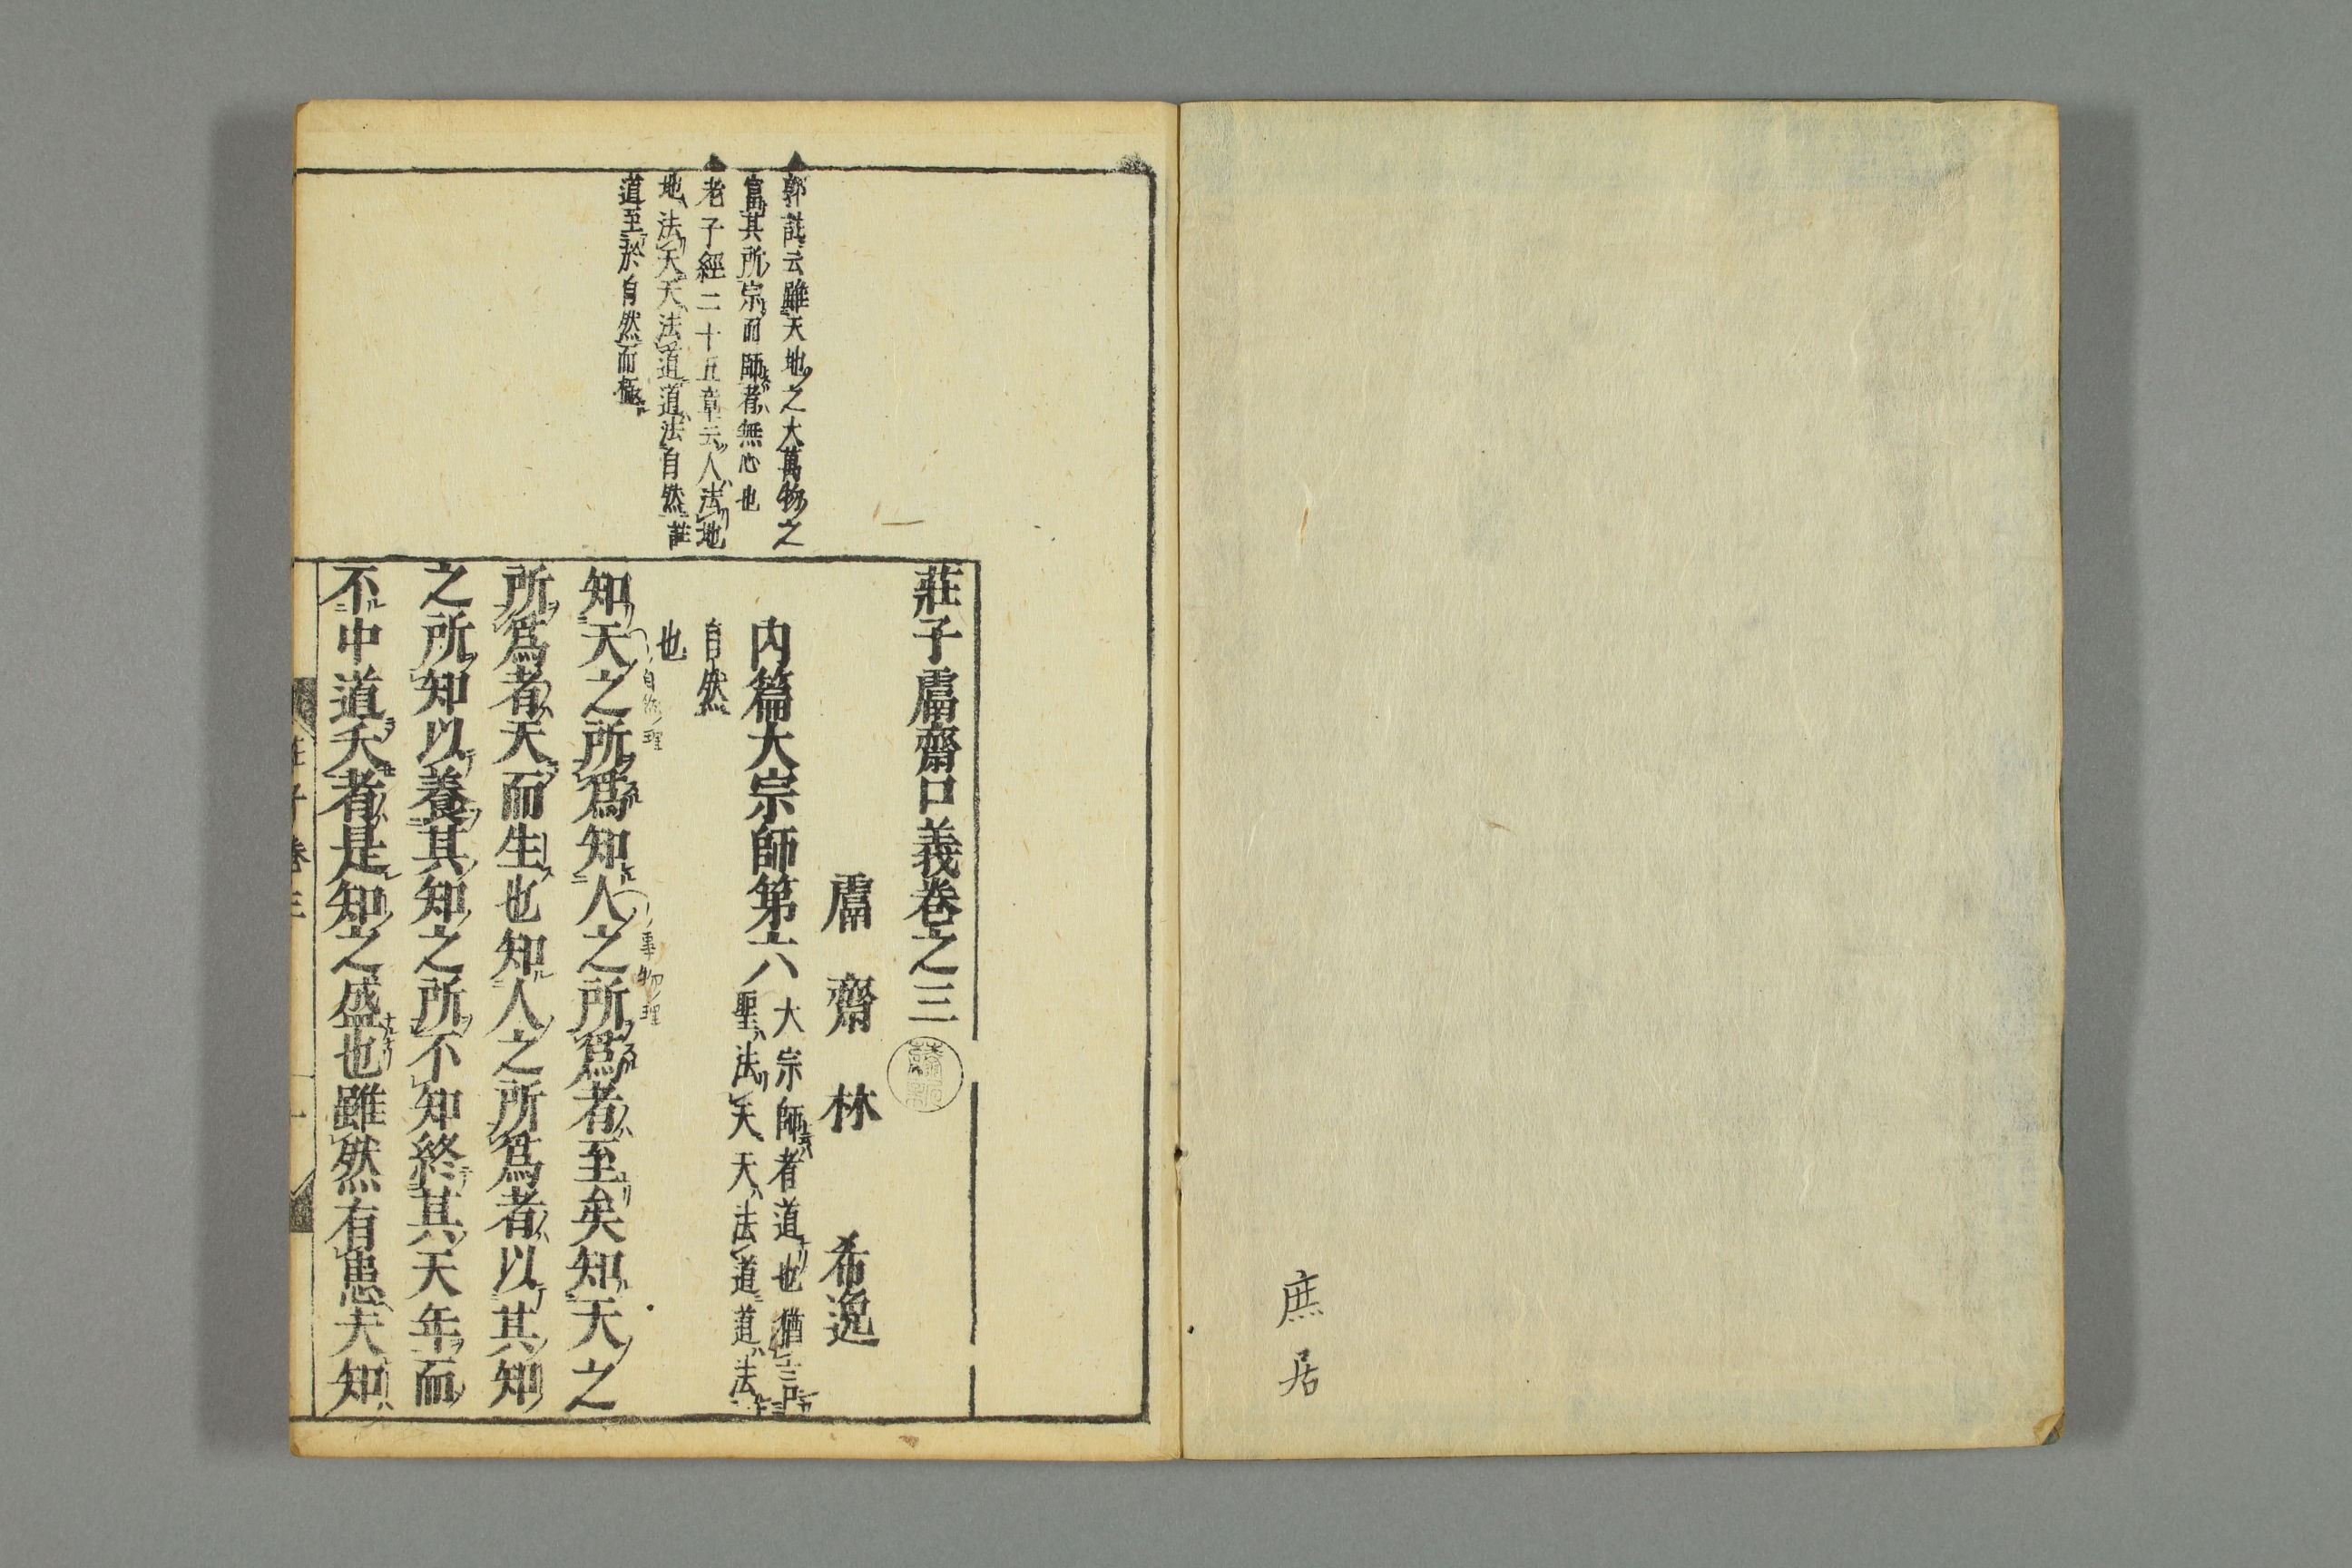 庶居
郭註云雖天地之大萬物之
富其所宗而師者無心也
老子經二十五章云人法地
地法天天法道道法自然註
道至於自然而極
莊子鬳齋口義卷之三
鬳齋林希逸
內篇大宗師第六
大宗師者道也猶言
聖法天天法道道法
自然
也
知天之所爲知人之所爲者至矣知天之
自然ノ理
事物ノ理
所爲者天而生也知人之所爲者以其知
之所知以養其知之所不知終其天年而
不中道夭者是知之盛也雖然有患夫知
莊子卷三
一